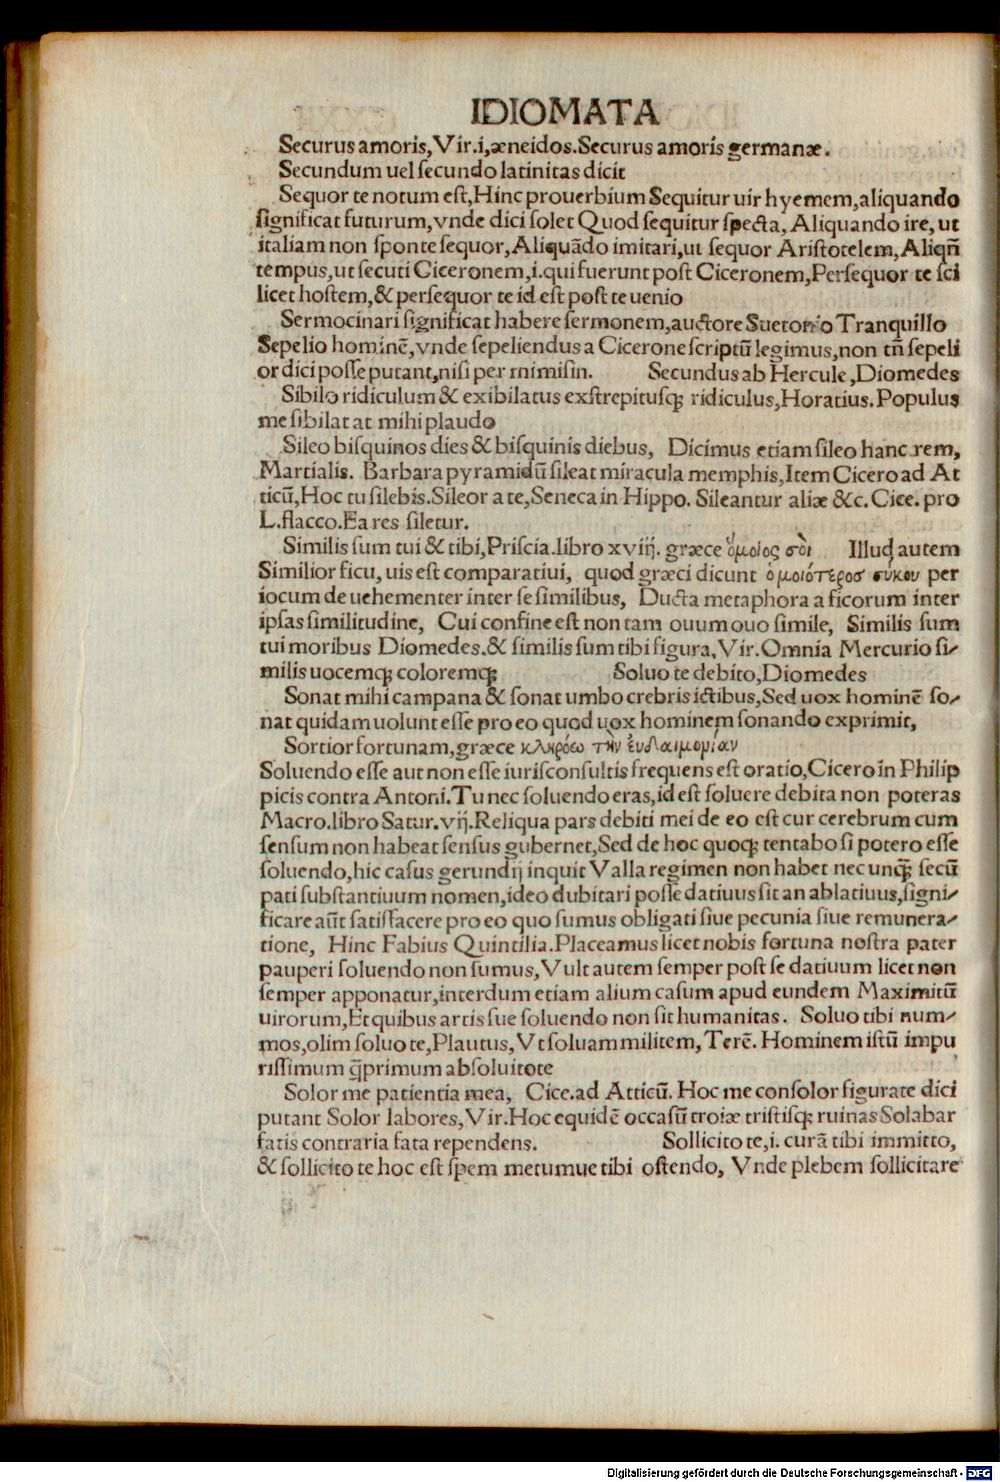 IDIOMATA
Securus amoris,Vir.i,æneidos.Securus amoris germanæ.
Secundum uel ſecundo latinitas dicit
Sequor te notum eſt,Hinc prouerbium Sequitur uir hyemem,aliquando
ſignificat futurum,vnde dici ſolet Quod ſequitur ſpecta, Aliquando ire, ut
italiam non ſponte ſequor,Aliquādo imitari,ut ſequor Ariſtotelem,Aliqñ
tempus,ut ſecuti Ciceronem,i.qui fuerunt poſt Ciceronem,Perſequor te ſci
licet hoſtem,& perſequor te id eſt poſt te uenio
Sermocinari ſignificat habere ſermonem,auctore Suetonio Tranquillo
Sepelio hominē,vnde ſepeliendus a Cicerone ſcriptū legimus,non tñ ſepeli
or dici poſſe putant,niſi per mimiſin. Secundus ab Hercule,Diomedes
Sibilo ridiculum & exibilatus exſtrepituſq; ridiculus,Horatius.Populus
me ſibilat at mihi plaudo
Sileo biſquinos dies & biſquinis diebus, Dicimus etiam ſileo hanc rem,
Martialis. Barbara pyramidū ſileat miracula memphis,Item Cicero ad At
ticū,Hoc tu ſilebis.Sileor a te,Seneca in Hippo. Sileantur aliæ &c. Cice. pro
L.flacco.Ea res ſiletur.
Similis ſum tui & tibi,Priſcia.libro xviij. græce ὅμοίος σὸι Illud autem
Similior ficu, uis eſt comparatiui, quod græci dicunt ὁμοιότεροσ σύκου per
iocum de uehementer inter ſe ſimilibus, Ducta metaphora a ficorum inter
ipſas ſimilitudine, Cui confine eſt non tam ouum ouo ſimile, Similis ſum
tui moribus Diomedes.& ſimilis ſum tibi figura,Vir.Omnia Mercurio ſi-
milis uocemq; coloremq; Soluo te debito,Diomedes
Sonat mihi campana & ſonat umbo crebris ictibus,Sed uox hominē ſo-
nat quidam uolunt eſſe pro eo quod uox hominem ſonando exprimit,
Sortior fortunam,græce κληρόω τὴν ἐυδαιμομίαν
Soluendo eſſe aut non eſſe iuriſconſultis frequens eſt oratio,Cicero in Philip
picis contra Antoni.Tu nec ſoluendo eras,id eſt ſoluere debita non poteras
Macro.libro Satur.vij.Reliqua pars debiti mei de eo eſt cur cerebrum cum
ſenſum non habeat ſenſus gubernet,Sed de hoc quoq; tentabo ſi potero eſſe
ſoluendo,hic caſus gerundij inquit Valla regimen non habet nec unq̃ ſecū
pati ſubſtantiuum nomen,ideo dubitari poſſe datiuus ſit an ablatiuus,ſigni-
ficare aūt ſatiſfacere pro eo quo ſumus obligati ſiue pecunia ſiue remunera-
tione, Hinc Fabius Quintilia.Placeamus licet nobis fortuna noſtra pater
pauperi ſoluendo non ſumus,Vult autem ſemper poſt ſe datiuum licet non
ſemper apponatur,interdum etiam alium caſum apud eundem Maximitū
uirorum,Et quibus artis ſue ſoluendo non ſit humanitas. Soluo tibi num-
mos,olim ſoluo te,Plautus,Vt ſoluam militem,Terē. Hominem iſtū impu
riſſimum q̃primum abſoluitote
Solor me patientia mea, Cice.ad Atticū. Hoc me conſolor figurate dici
putant Solor labores,Vir.Hoc equidē occaſū troiæ triſtiſq; ruinas Solabar
fatis contraria fata rependens. Sollicito te,i. curā tibi immitto,
& ſollicito te hoc eſt ſpem metumue tibi oſtendo, Vnde plebem ſollicitare
Digitalisierung gefördert durch die Deutsche Forschungsgemeinschaft - DFG